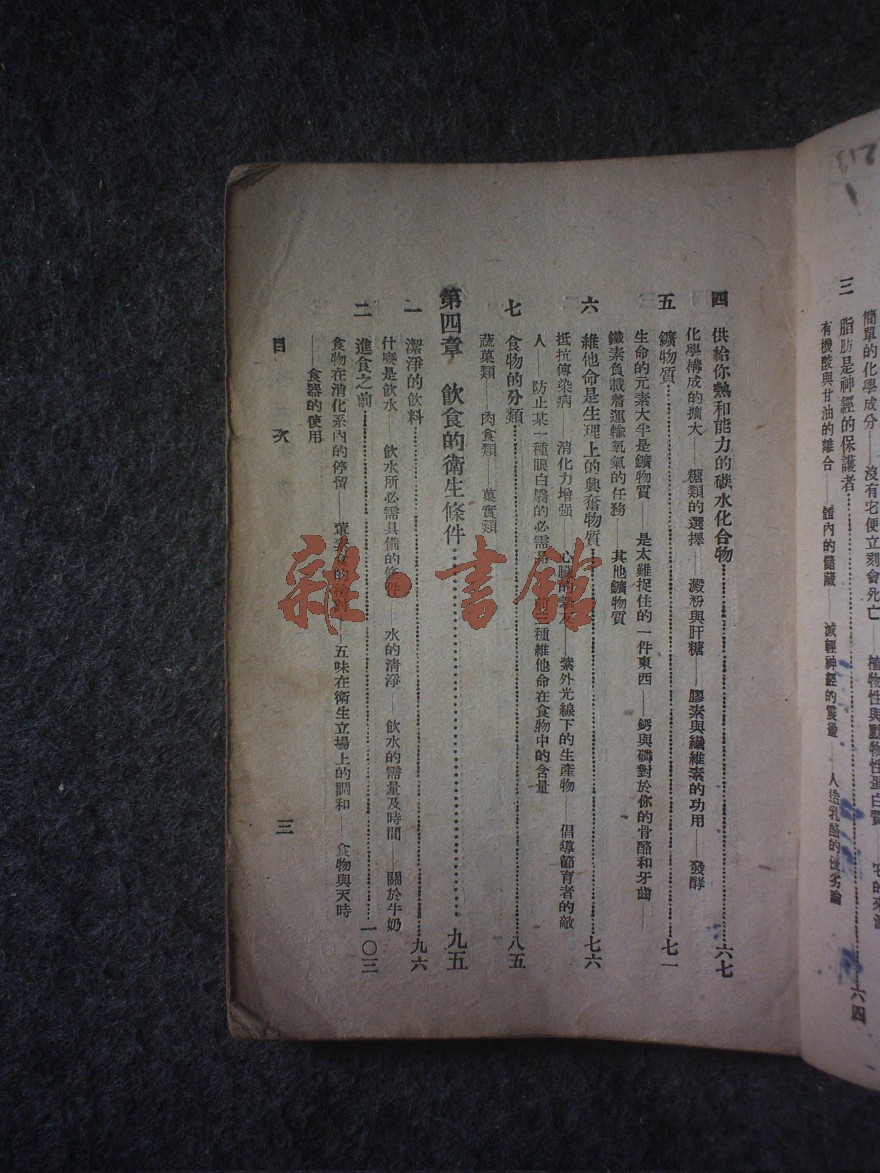 簡單的化學成分——沒有它便立刻會死亡——植物性與動物性蛋白質——它的來源
三 脂肪是神經的保護者……六四
有機酸與甘油的離合——體內的儲藏——減輕神經的震盪——人造乳酪的優劣論
四 供給你熱和能力的碳水化合物……六七
化學構成的擴大——糖類的選擇——澱粉與肝糖——膠素與纖維素的功用——發酵
五 鑛物質……七一
生命的元素大半是鑛物質——是太難捉住的一件東西——鈣與磷對於你的骨骼和牙齒——
鐵素負載着運輸氧氣的任務——其他鑛物質
六 維他命是生理上的興奮物質……七六
抵抗傳染病——消化力增强——心臟的摯友——紫外光線下的生產物——倡導節育者的敵
人——防止某一種眼白翳的必需品——前三種維他命在食物中的含量
七 食物的分類……八五
蔬菜類——肉食類——菓實類
第四章 飲食的衛生條件……九五
一 潔淨的飲料……九六
什麼是飲水——飲水所必需具備的條件——水的清淨——飲水的需量及時間——關於牛奶
二 進食之前……一〇三
食物在消化系內的停留——葷素食的——五味在衛生立場上的調和——食物與天時
——食器的使用
目次 三
雜·書館